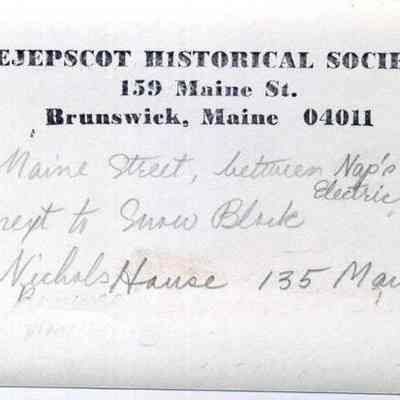 EJEPSCOT HISTORICAL SOCIE
159 Maine St.
Brunswick, Maine 04011
Maine Street, between Nap's
Electric
next to Snow Block
Nichols House 135 Mai